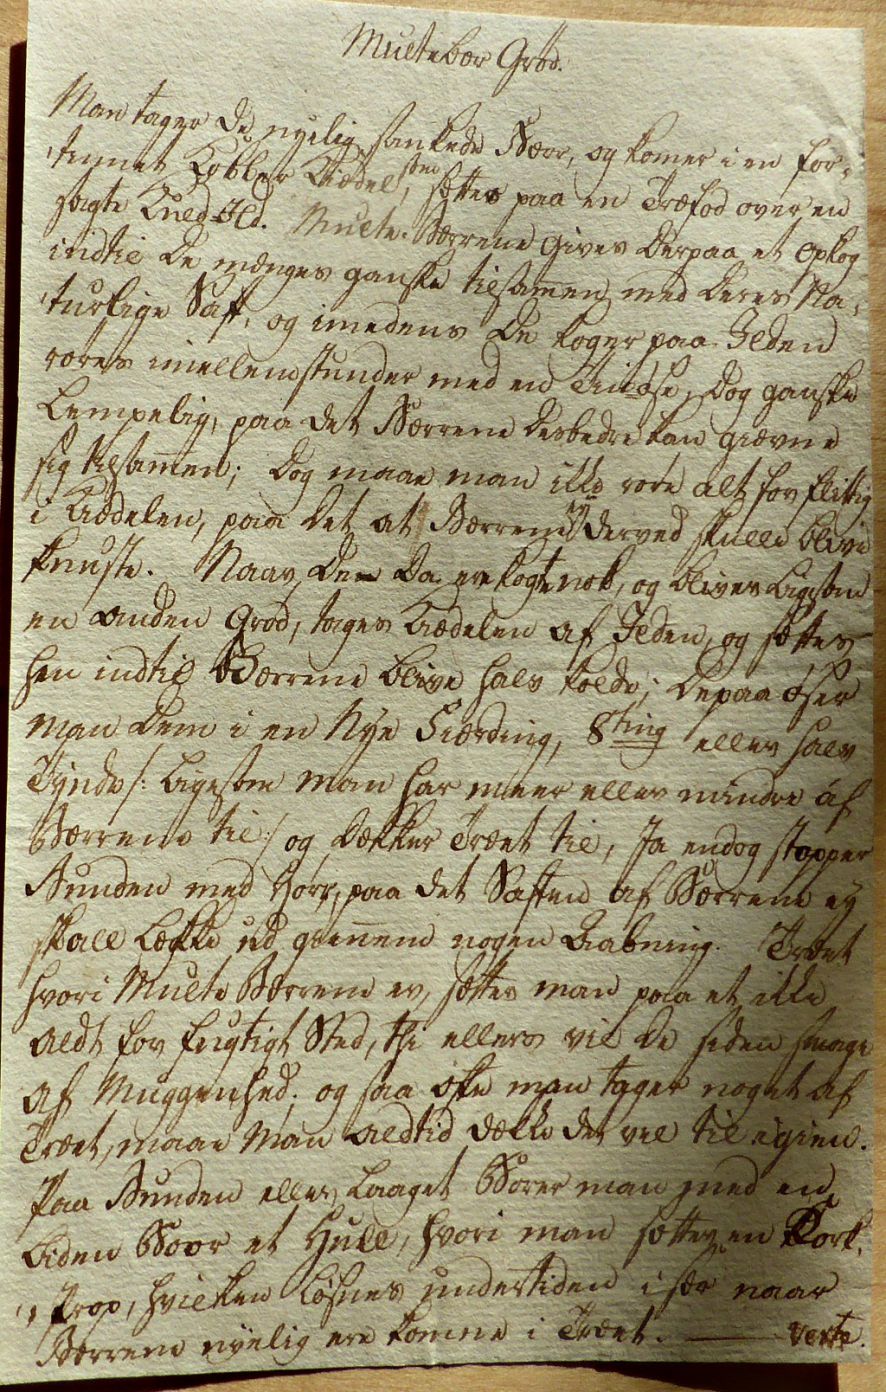 Multebær Grød.
Man tager de nyelig sankede Bær, og komer i en for-
tinnet Kobber Kiædel, sættes paa en Træfod over en
sagte Kuld-Ild. Multe-Bærrene gives derpaa et Opkog
indtil de mænges ganske tilsamen med deres Na-
turlige Saft, og imedens de koger paa Ilden
røres imellemstunder med en Tinøse, dog ganske
Lempelig, paa det Bærrene desbedre kan giævne
sig tilsammen; dog maae man ikke røre alt for flittig
i Kiædelen, paa det at Bærrene ey derved skulle blive
knuste. Naar de da ere kogte nok, og bliver Ligesom
en anden Grød, tages Kiædelen af Ilden, og sættes
hen indtil Bærrene blive halv kolde; Depaa øser
man dem i en Nye Fiærding, 8ting eller halv
Tynde /: Ligesom man har meer eller mindre af
Bærrene til :/ og dækker Træet til, Ja endog stopper
Bunden med Hørr, paa det Saften af Bærrene ey
skall Lække ud giennem nogen Aabning. Træet
hvori Multe Bærrene er, sætter man paa et ikke
aldt for fugtigt Sted, thi ellers vil de siden smage
af Muggenhed; og saa ofte man tager noget af
Træet, maae man aldtid dække det vel til igien.
Paa Bunden eller Laaget Borer man med en
Liden Boor et Hull, hvori man sætter en Kork-
prop, hvilken Løsnes undertiden især naar
Bærrene nyelig ere komne i Træet. verte.